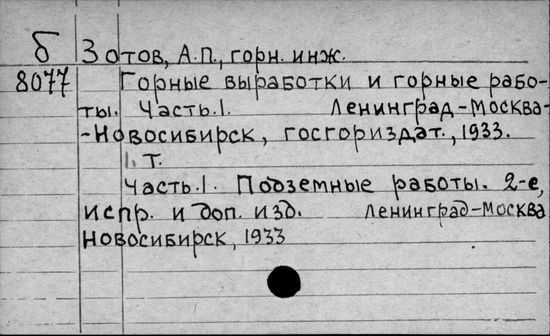 б Зотов, А.П., горн. инж.
8077 Горные выработки и горные рабо-
ты. Часть.1. Ленинград-Москва-
-Новосибирск, госгориздат., 1933.
1. т.
Часть.1. Подземные работы. 2-е,
испр. и доп. изд. Ленинград-Москва
Новосибирск, 1933